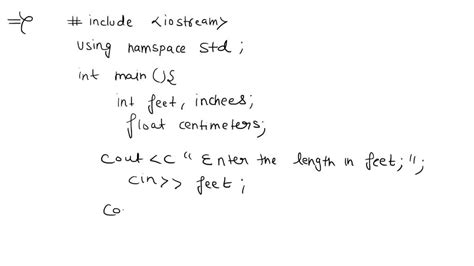 # include <iostream>
using namspace std ;
int main (){
int feet, inchees;
float centimeters;
cout << " Enter the length in feet; " ;
cin >> feet ;
co